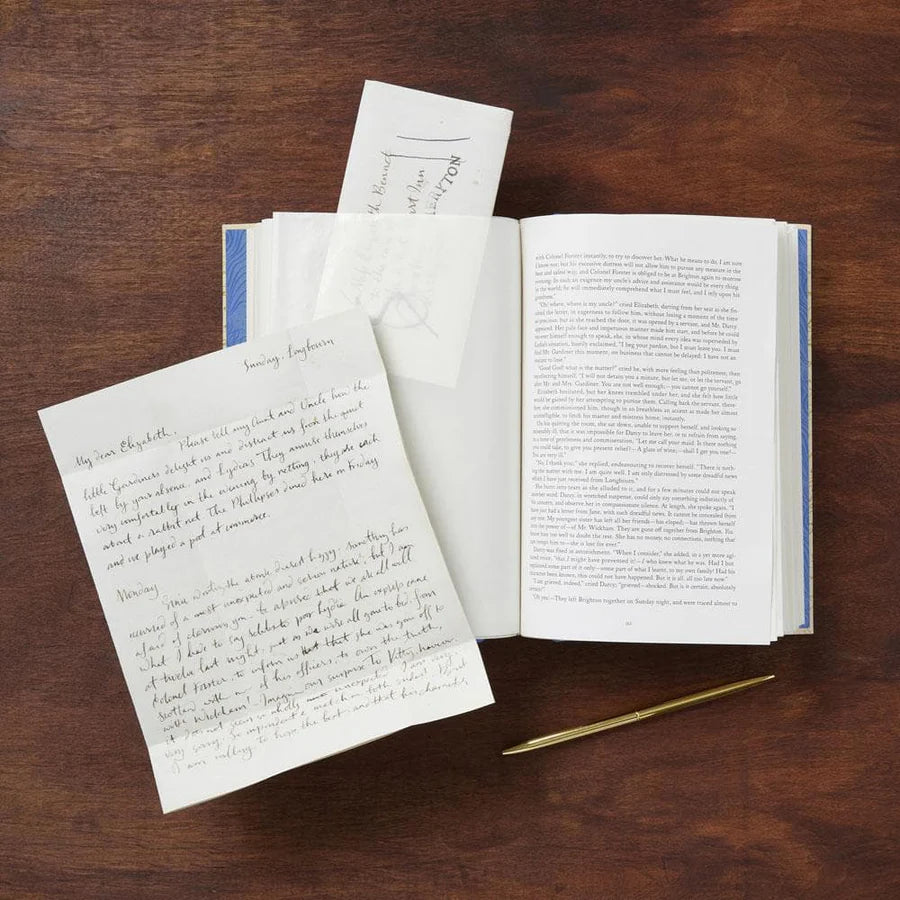 th Bennet
Inn
Sunday, Longbourn
My dear Elizabeth, Please tell my Aunt and Uncle how the
little Gardiners delight us and distract us from the quiet
left by your absence, and Lydia's. They amuse themselves
very comfortably in the evening by netting; they are each
about a rabbit net. The Phillipses dined here on Friday
and we played a pool at commerce.
Monday
Since writing the above, dearest Lizzy, something has
occurred of a most unexpected and serious nature; but I am
afraid of alarming you – be assured that we are all well.
What I have to say relates to poor Lydia. An express came
at twelve last night, just as we were all gone to bed, from
Colonel Forster, to inform us that she was gone off to
Scotland with one of his officers; to own the truth,
with Wickham! Imagine our surprise. To Kitty, however,
it does not seem so wholly unexpected. I am very,
very sorry. So imprudent a match on both sides! But
I am willing to hope the best, and that his character
with Colonel Forster instantly, to try to discover her. What he means to do, I am sure
I know not; but his excessive distress will not allow him to pursue any measure in the
best and safest way, and Colonel Forster is obliged to be at Brighton again to-morrow
evening. In such an exigence my uncle's advice and assistance would be every thing
in the world; he will immediately comprehend what I must feel, and I rely upon his
goodness."
"Oh! where, where is my uncle?" cried Elizabeth, darting from her seat as she fin-
ished the letter, in eagerness to follow him, without losing a moment of the time
so precious; but as she reached the door, it was opened by a servant, and Mr. Darcy
appeared. Her pale face and impetuous manner made him start, and before he could
recover himself enough to speak, she, in whose mind every idea was superseded by
Lydia's situation, hastily exclaimed, "I beg your pardon, but I must leave you. I must
find Mr. Gardiner this moment, on business that cannot be delayed; I have not an
instant to lose."
"Good God! what is the matter?" cried he, with more feeling than politeness; then
recollecting himself, "I will not detain you a minute, but let me, or let the servant, go
after Mr. and Mrs. Gardiner. You are not well enough;—you cannot go yourself."
Elizabeth hesitated, but her knees trembled under her, and she felt how little
would be gained by her attempting to pursue them. Calling back the servant, there-
fore, she commissioned him, though in so breathless an accent as made her almost
unintelligible, to fetch his master and mistress home, instantly.
On his quitting the room, she sat down, unable to support herself, and looking so
miserably ill, that it was impossible for Darcy to leave her, or to refrain from saying,
in a tone of gentleness and commiseration, "Let me call your maid. Is there nothing
you could take, to give you present relief?—A glass of wine;—shall I get you one?—
You are very ill."
"No, I thank you;" she replied, endeavouring to recover herself. "There is noth-
ing the matter with me. I am quite well. I am only distressed by some dreadful news
which I have just received from Longbourn."
She burst into tears as she alluded to it, and for a few minutes could not speak
another word. Darcy, in wretched suspense, could only say something indistinctly of
his concern, and observe her in compassionate silence. At length, she spoke again. "I
have just had a letter from Jane, with such dreadful news. It cannot be concealed from
any one. My youngest sister has left all her friends—has eloped;—has thrown herself
into the power of—of Mr. Wickham. They are gone off together from Brighton. You
know him too well to doubt the rest. She has no money, no connections, nothing that
can tempt him to—she is lost for ever."
Darcy was fixed in astonishment. "When I consider," she added, in a yet more agi-
tated voice, "that I might have prevented it!—I who knew what he was. Had I but
explained some part of it only—some part of what I learnt, to my own family! Had his
character been known, this could not have happened. But it is all, all too late now."
"I am grieved, indeed," cried Darcy; "grieved—shocked. But is it certain, absolutely
certain?"
"Oh yes!—They left Brighton together on Sunday night, and were traced almost to